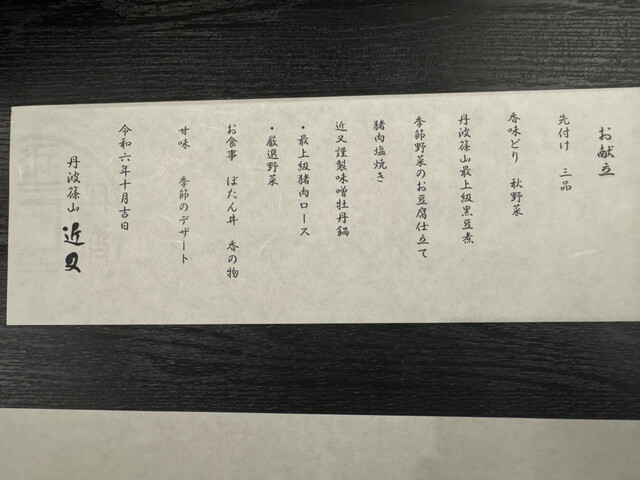 お献立
先付け 三品
香味どり 秋野菜
丹波篠山最上級黒豆煮
季節野菜のお豆腐仕立て
猪肉塩焼き
近又謹製味噌牡丹鍋
・最上級猪肉ロース
・厳選野菜
お食事 ぼたん丼 香の物
甘味 季節のデザート
令和六年十月吉日
丹波篠山 近又